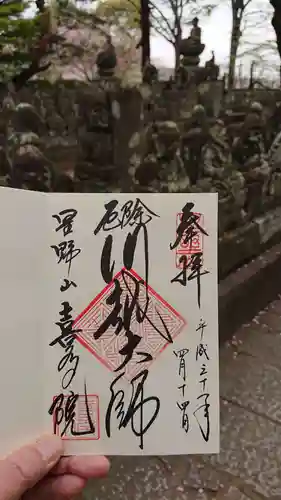 奉拝
平成三十一年
四月十四日
厄除
川越大師
星野山
喜多院